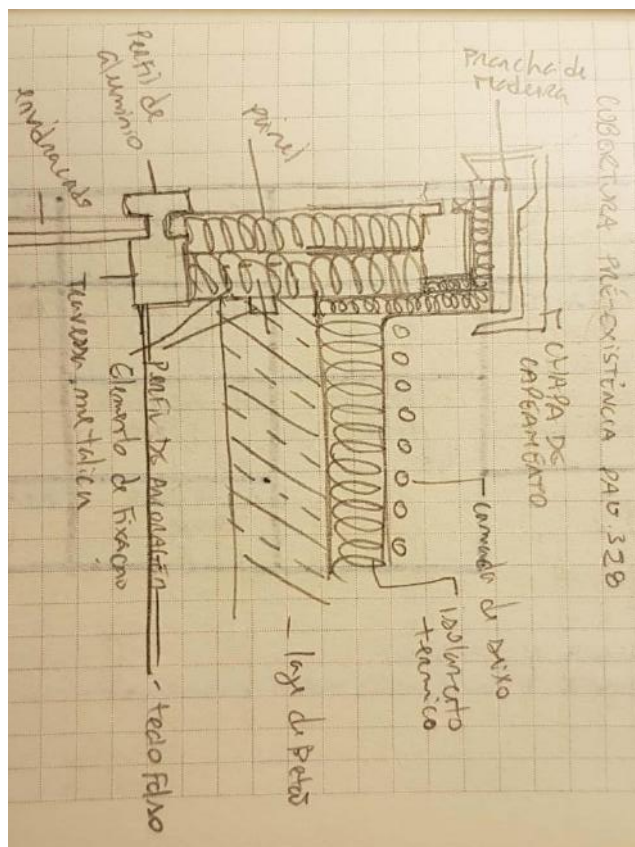 COBERTURA PRÉ-EXISTÊNCIA PAG. 328
prancha de
madeira
CHAPA DE
CAPEAMENTO
camada de seixo
isolamento
térmico
painel
laje de betão
Perfil de
alumínio
envidraçado
PERFIL DE ANCORAGEM
Elemento de Fixação
Travessa metálica
tecto falso